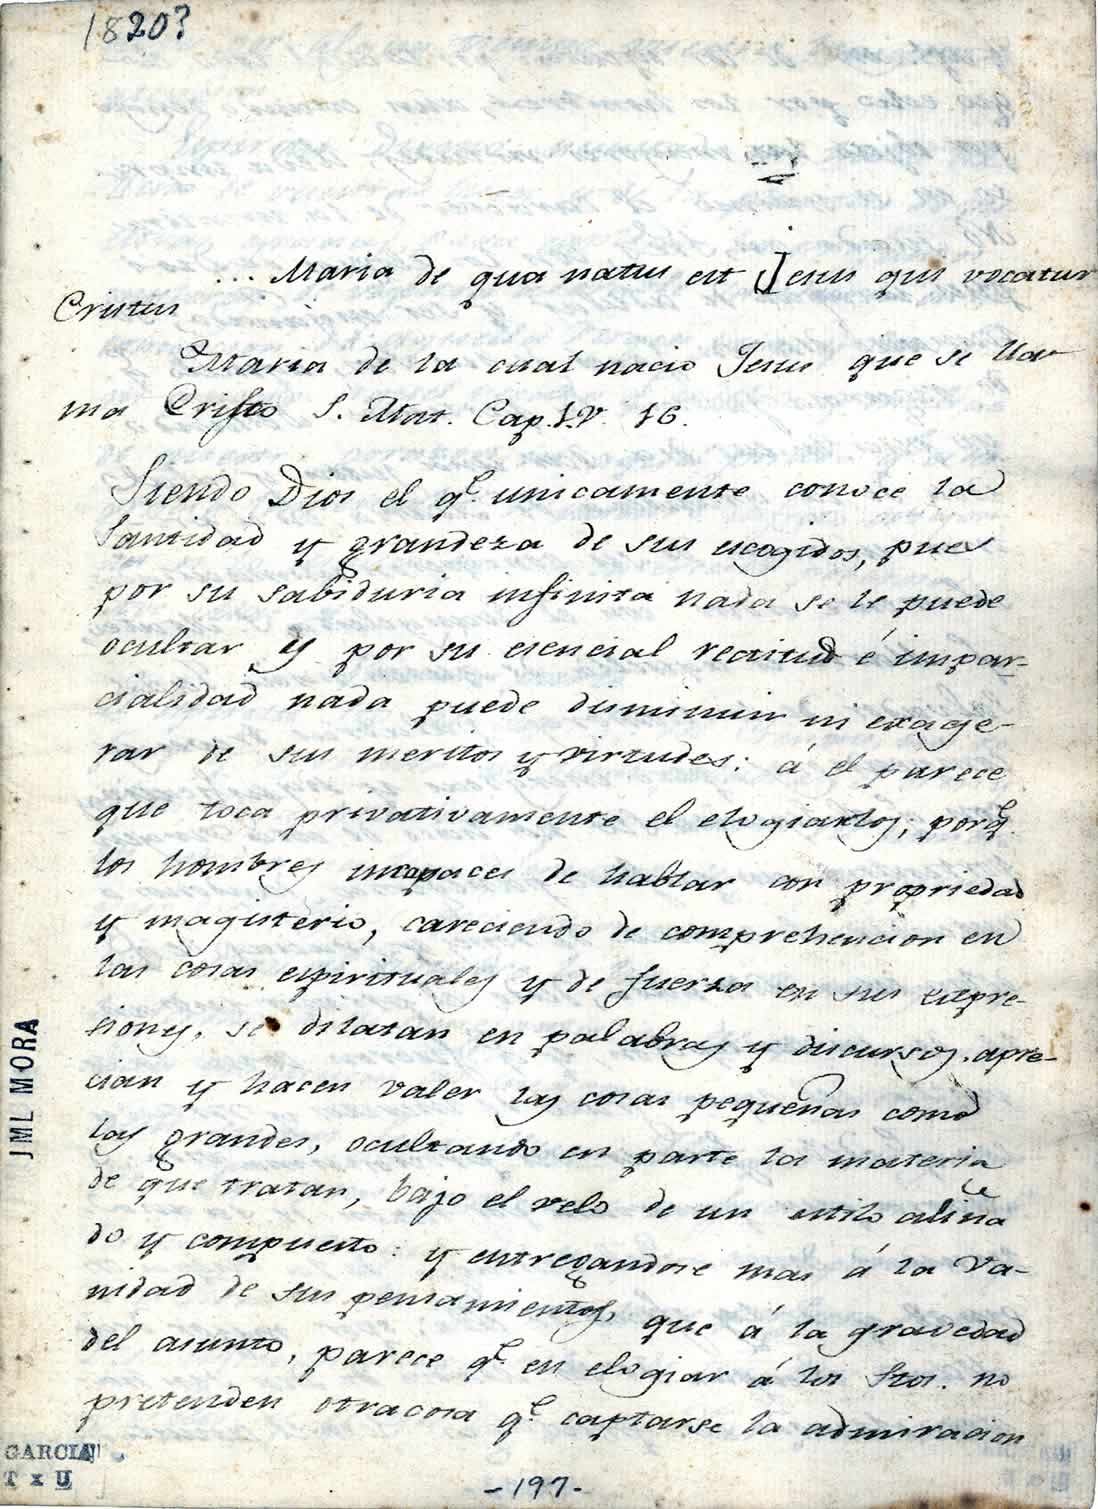 1820?
... Maria de qua natus est Jesus qui vocatur
Cristus
Maria de la cual nacio Jesus que se lla-
ma Cristo S. Mat. Cap. 1. V. 16.
Siendo Dios el q.e unicamente conoce la
Santidad y grandeza de sus escogidos, pues
por su sabiduria infinita nada se le puede
ocultar y por su esencial rectitud é impar-
cialidad nada puede disminuir ni exage-
rar de sus meritos y virtudes: á el parece
que toca privativamente el elogiarlos; porq.e
los hombres incapaces de hablar con propiedad
y magisterio, careciendo de comprehencion en
las cosas espirituales y de fuerza en sus expre-
siones, se dilatan en palabras y discursos, apre-
cian y hacen valer las cosas pequeñas como
las grandes, ocultando en parte la materia
de que tratan, bajo el velo de un estilo aliña
do y compuesto: y entregandose mas á la va-
nidad de sus pensamientos, que á la gravedad
del asunto, parece q.e en elogiar á los Stos. no
pretenden otra cosa q.e captarse la admiracion
JML MORA
GARCIA
T x U
-197-